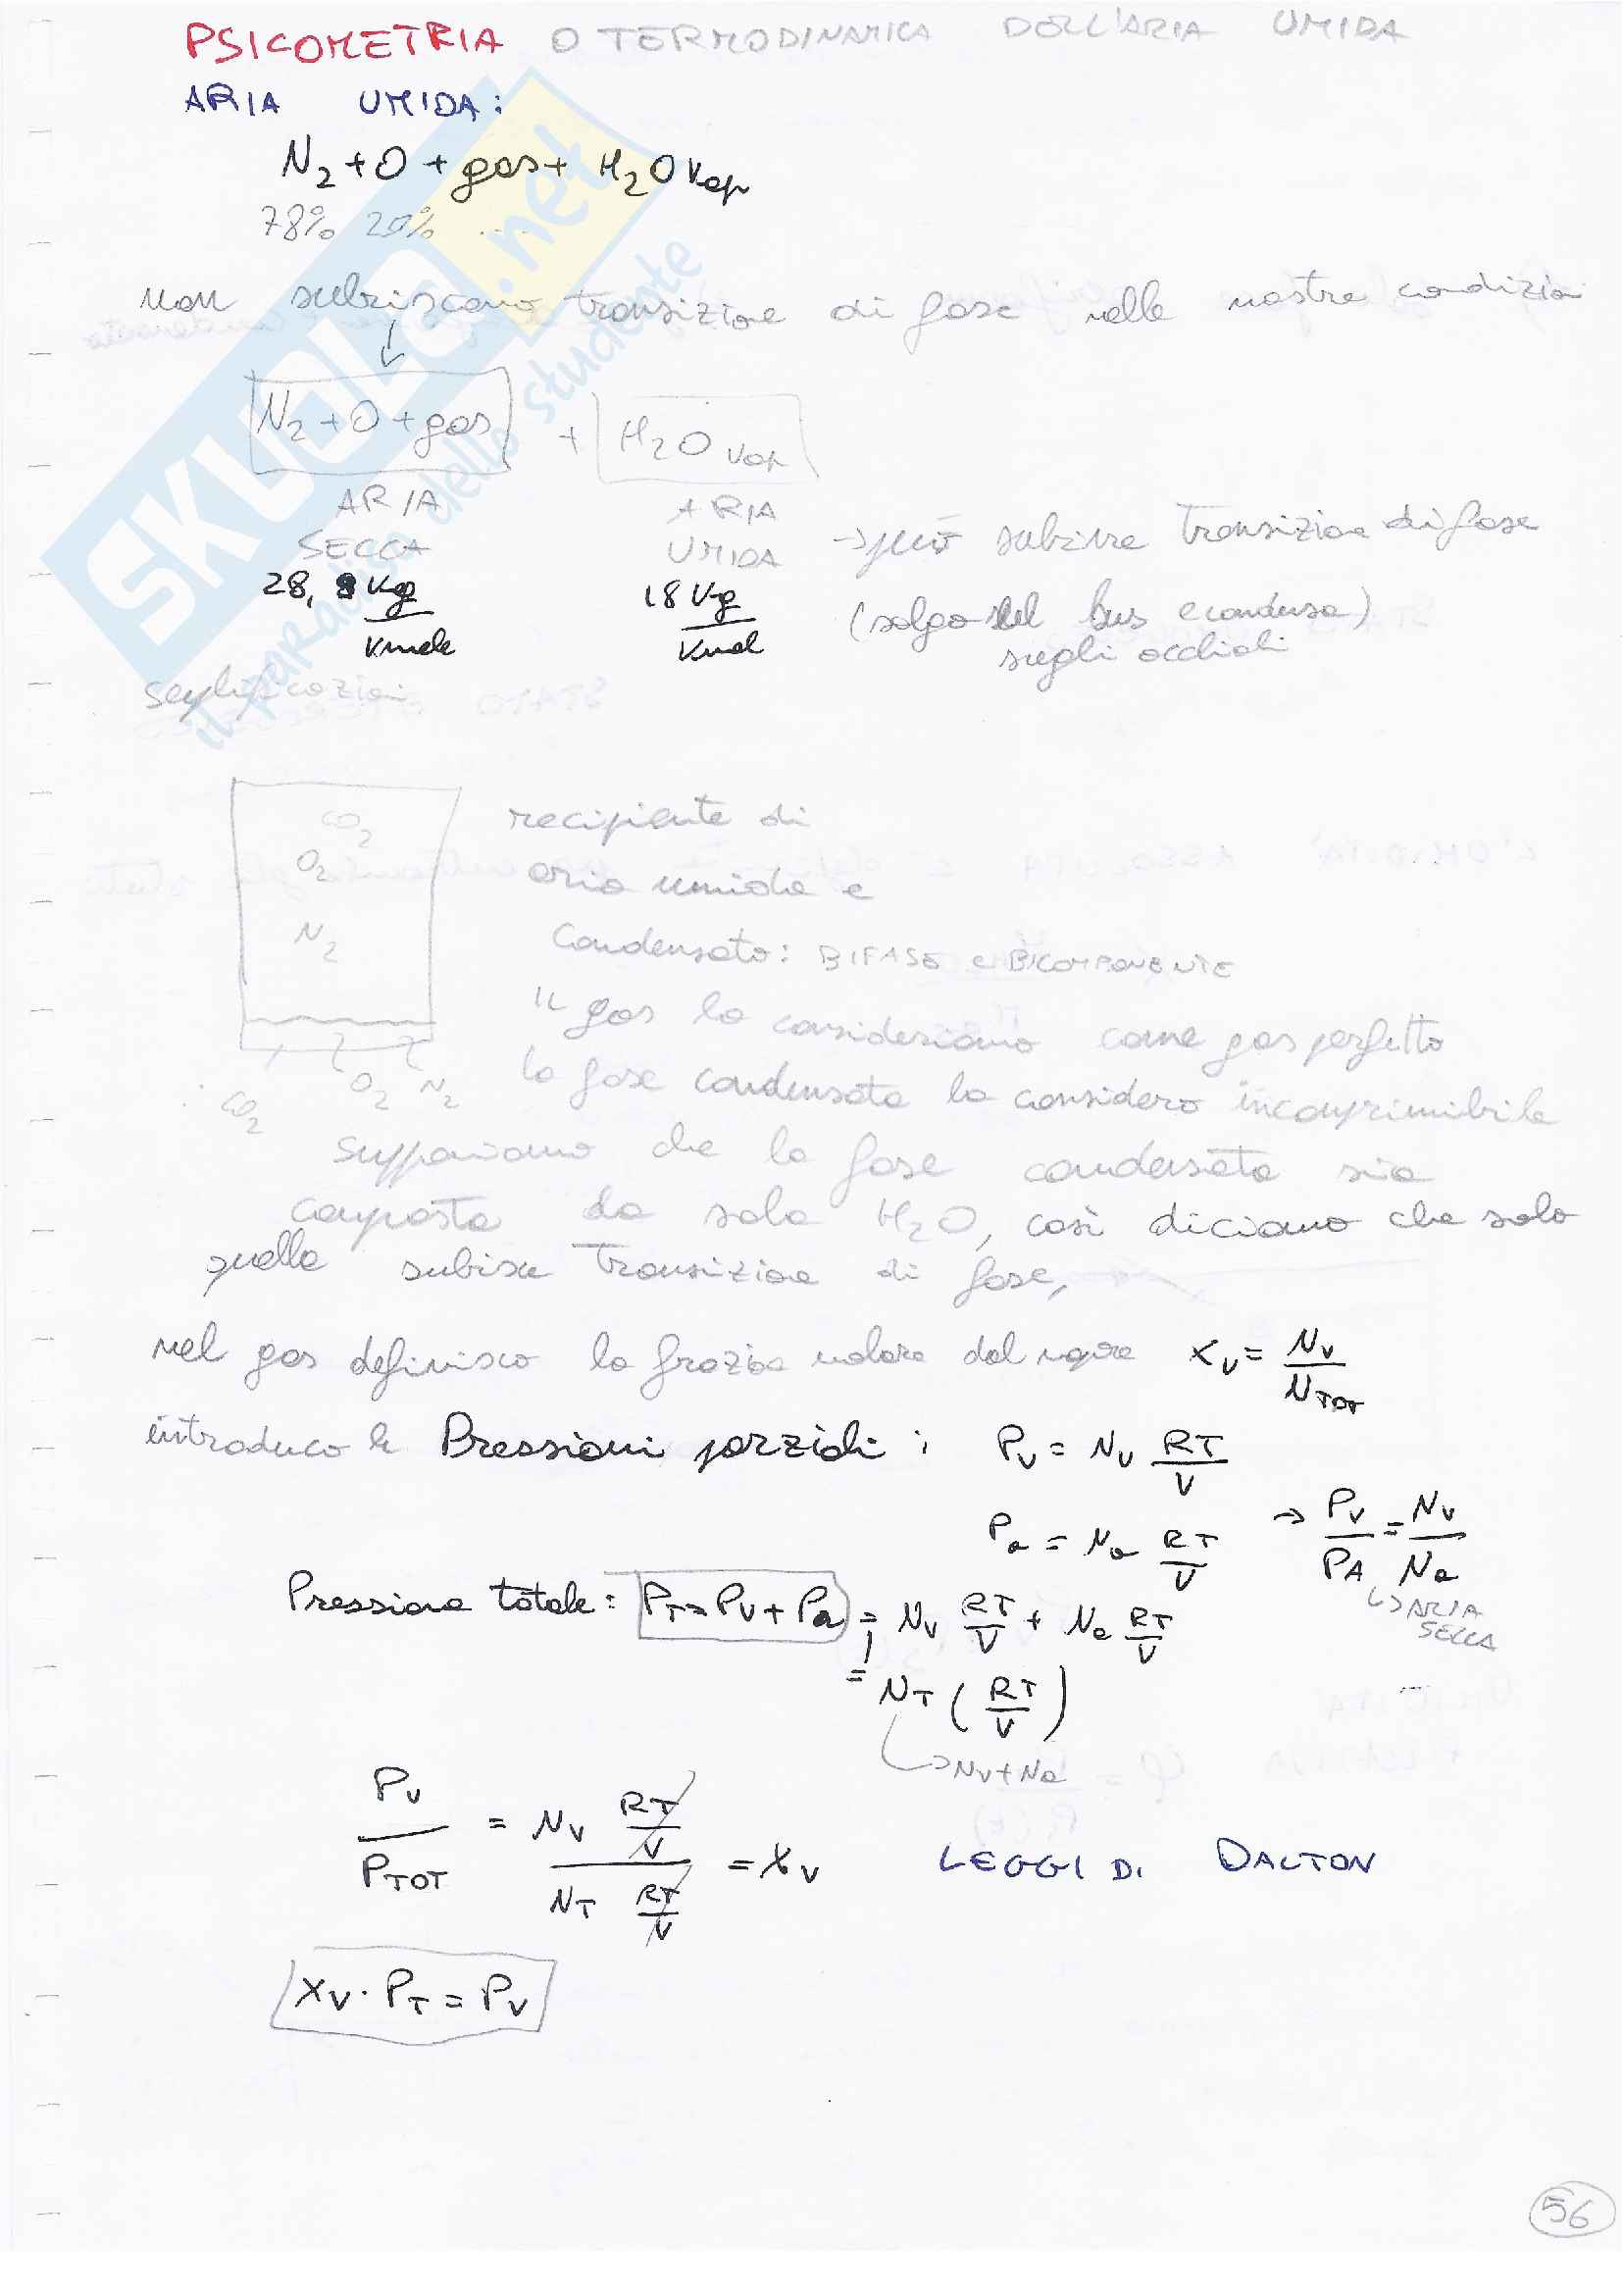 PSICOMETRIA O TERMODINAMICA DELL'ARIA UMIDA
ARIA UMIDA:
N2 + O + gas + H2O vap
78% 20% ....
non subiscono transizione di fase nelle nostre condizioni
N2 + O + gas + H2O vap
ARIA SECCA
ARIA UMIDA → può subire transizione di fase
28,8 Kg/Kmole
18 Kg/Kmol
(salgo sul bus e condensa)
sugli occhiali
semplificazioni
CO2
O2
N2
recipiente di
aria umida e
condensato: BIFASE e BICOMPONENTE
CO2 O2 N2
IL gas lo consideriamo come gas perfetto
la fase condensata la considero incomprimibile
supponiamo che la fase condensata sia
composta da sola H2O, così diciamo che solo
quella subisce transizione di fase,
nel gas definisco la frazione molare del vapore xv = Nv/NTOT
introduco le Pressioni parziali: Pv = Nv RT/V
Pa = Na RT/V → Pv/PA = Nv/Na
↳ ARIA SECCA
Pressione totale: PT = Pv + Pa = Nv RT/V + Na RT/V
= NT (RT/V)
↳ Nv + Na
Pv/PTOT = Nv RT/V / NT RT/V = xv LEGGI DI DALTON
xv · PT = Pv
56
SKUOLA.net
il paradiso dello studente